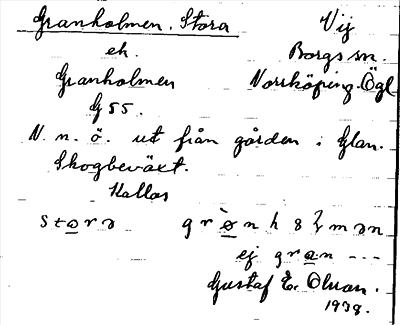 Granholmen, Stora Vij
ek. Borgs sn.
Granholmen Norrköping. Ögl
G 55.
N. n. ö. ut från gården i Glan.
Skogbeväxt.
Kallas
ej gran ---
Gustaf E. Olsson.
1938.